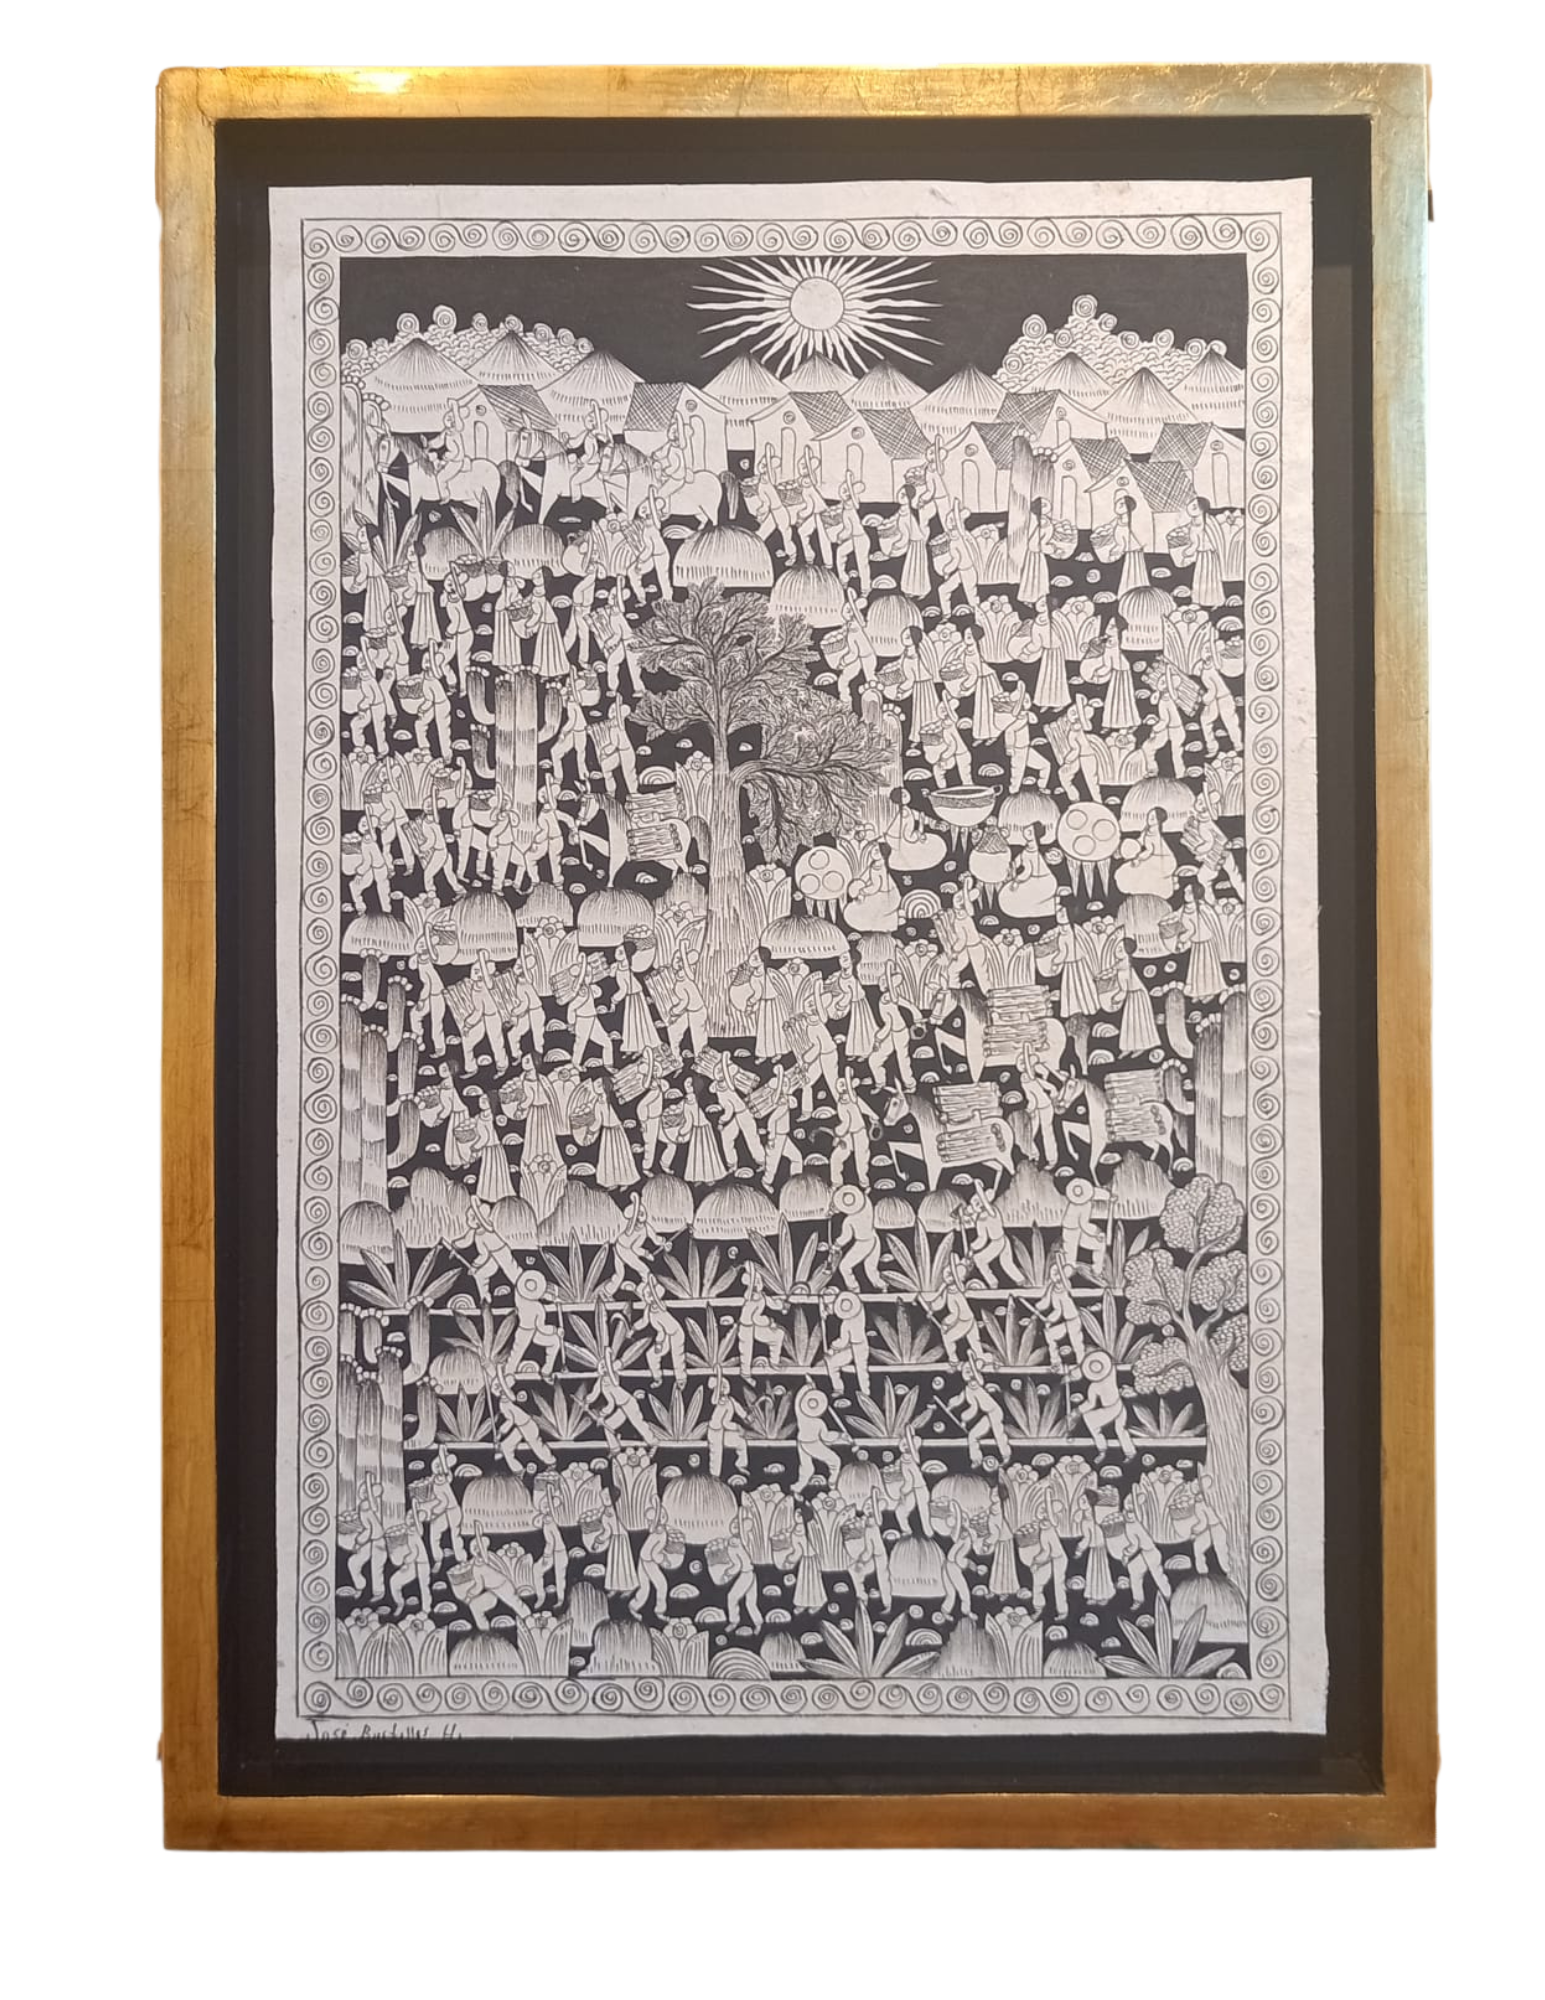 José Bustillos H.